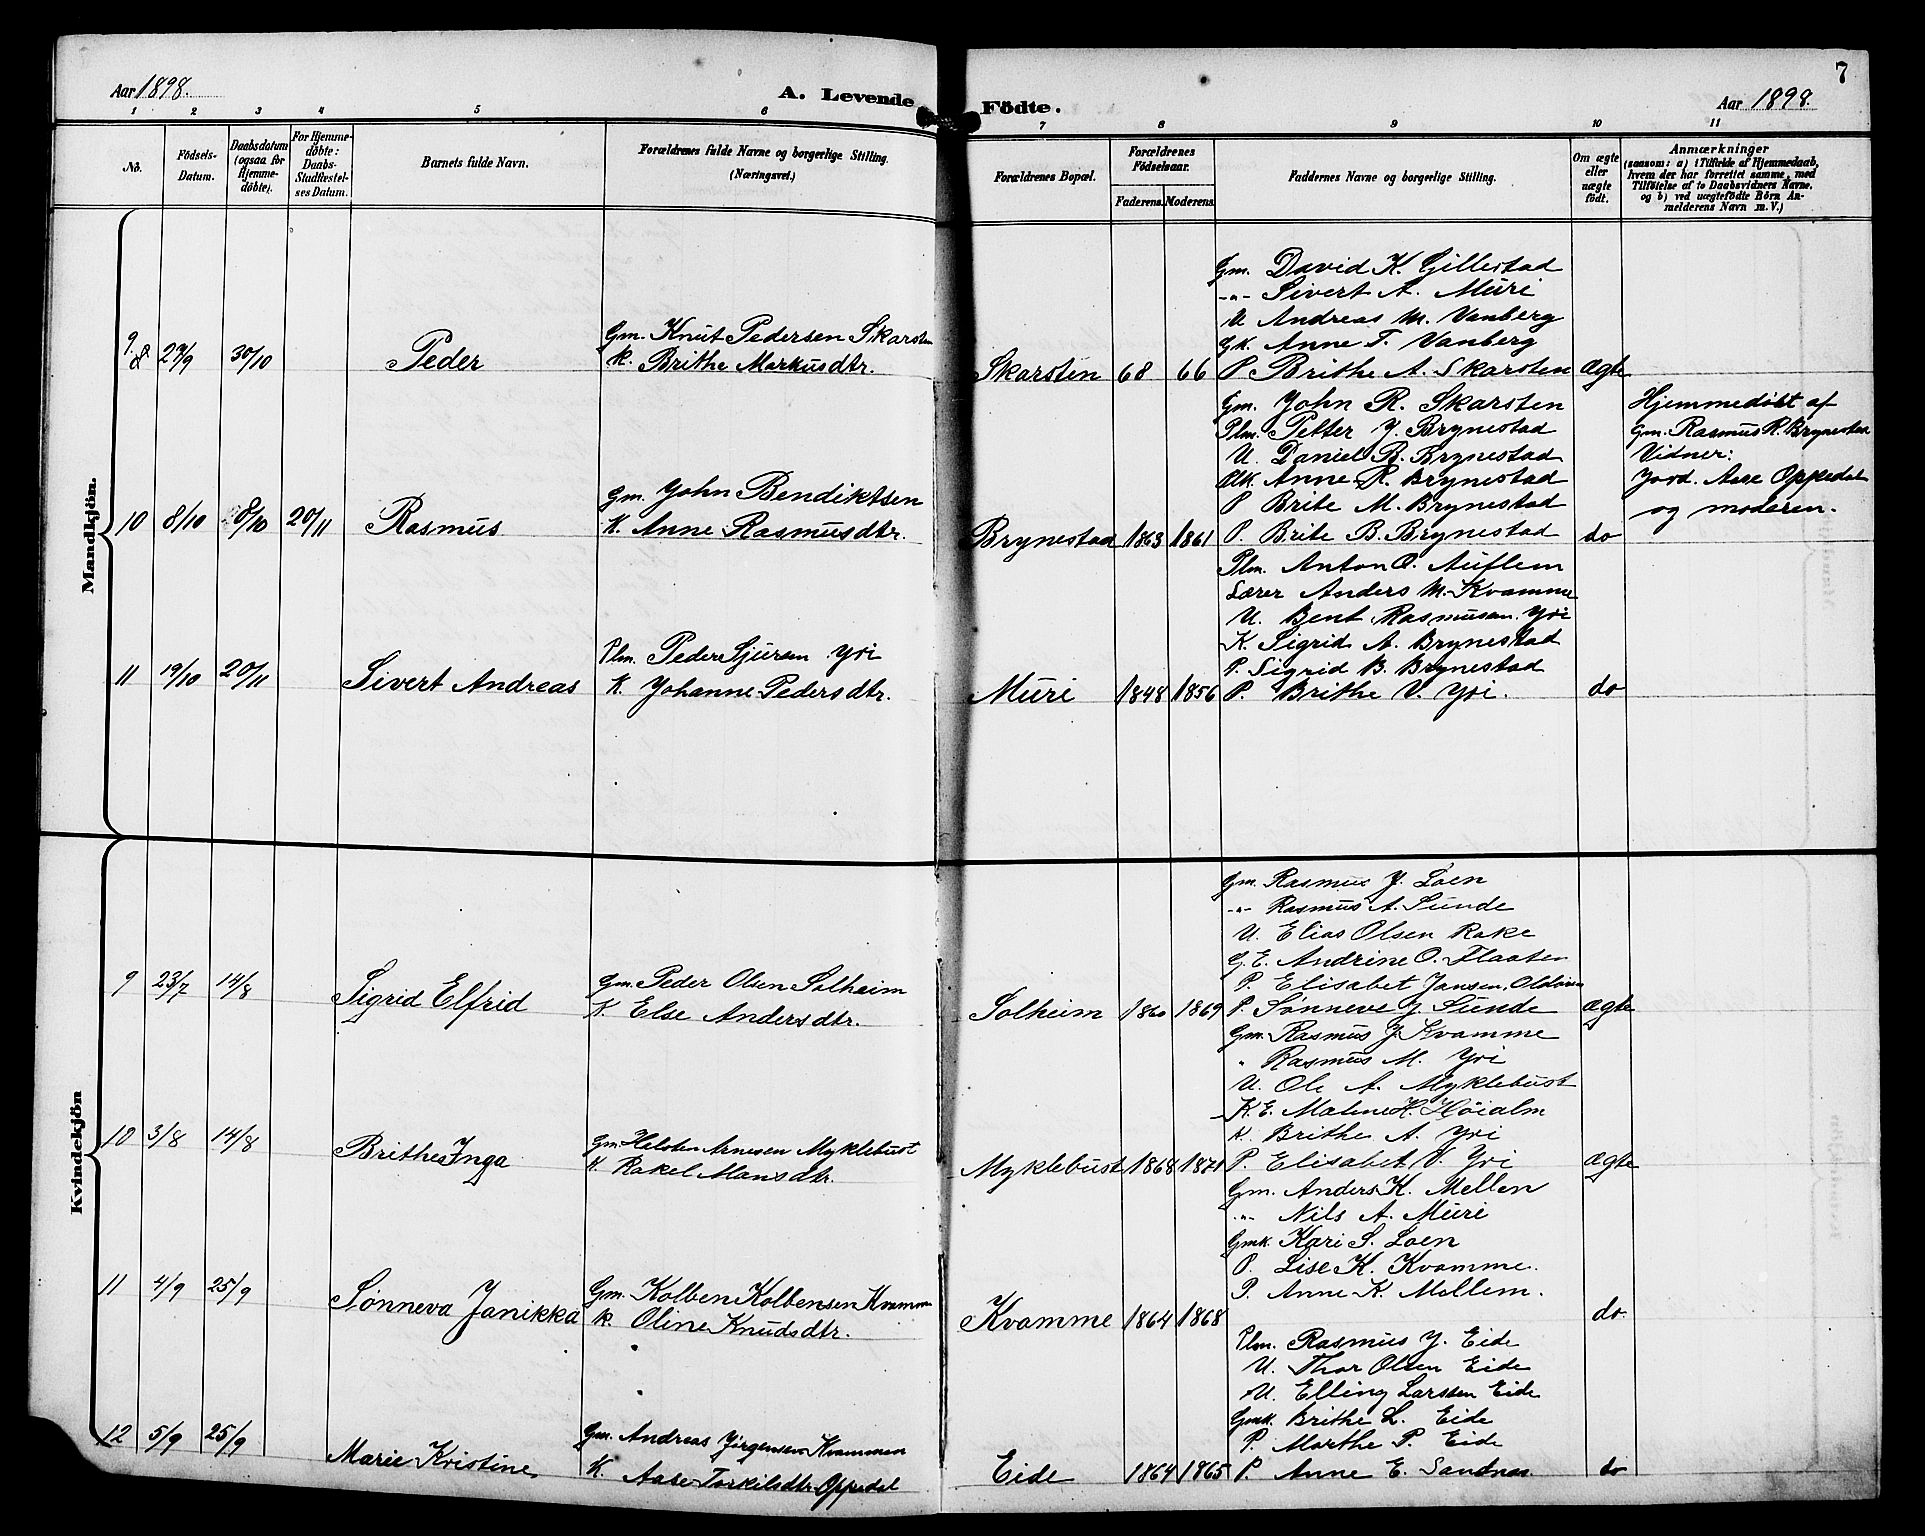 7
Aar 1898.
A. Levende
Födte.
Aar 1898.
1 2 3 4 5 6 7 8 9 10 11
No.
Födsels-
Datum.
Daabsdatum
(ogsaa for
Hjemme-
döbte).
For Hjemme-
döbte:
Daabs-
Stadfæstel-
ses Datum.
Barnets fulde Navn.
Forældrenes fulde Navne og borgerlige Stilling.
(Næringsvei.)
Forældrenes Bopæl.
Forældrenes
Födselsaar.
Faderens. Moderens.
Faddernes Navne og borgerlige Stilling.
Om ægte
eller
uægte
födt.
Anmærkninger
(saasom: a) i Tilfælde af Hjemmedaab,
hvem der har forrettet samme, med
Tilföielse af to Daabsvidners Navne,
og b) ved uægtefödte Börn An-
melderens Navn m. V.)
Mandkjön.
Gm. David K. Gillestad
-"- Sivert A. Muri
U Andreas M. Vanberg
Gm. Knut Pedersen Skarsten
GK. Anne T. Vanberg
9. 8 27/9 30/10 Peder
K. Brithe Markusdtr.
Skarsten 68 66 P Brithe A. Skarsten Ægte
Gm. John R. Skarsten
Plm. Petter J. Brynestad
U. Daniel B. Brynestad
Anne R. Brynestad
P Brite M. Brynestad
Hjemmedöbt af
Gm. Rasmus R. Brynestad
Vidner:
Jord. Aase Oppedal
og moderen.
Gm John Bendiktsen
10 8/10 8/10 20/11 Rasmus
K. Anne Rasmusdtr.
Brynestad 1863 1861 P. Brite B. Brynestad do
Plm. Anton O. Auflem
Lærer Anders M. Kvamme
U. Bent Rasmusen Yri
K Sigrid A. Brynestad
P. Sigrid B. Brynestad
Plm. Peder Sjursen Yri
11 19/10 20/11 Sivert Andreas
K. Johanne Pedersdtr.
Muri 1848 1856 P. Brithe V. Yri. do
Kvindekjön
Gm. Rasmus J. Loen
-"- Rasmus A. Sunde
U. Elias Olsen Rake
G. E. Andrine O. Flaaten
P. Elisabet Jansen,
Gm. Peder Olsen Solheim
9 23/7 14/8 Sigrid Elfrid
K Else Andersdtr.
Solheim 1860 1869 P. Sønneve J. Sunde Ægte
Gm. Rasmus J. Kvamme
" Rasmus M. Yri
U. Ole A. Myklebust
K. E. Malene H. Höialm
K. Brithe A. Yri
Gm. Arnesen Myklebust
10 3/8 14/8 Brithe Inga
K. Rakel Mansdtr.
Myklebust 1868 1871 P. Elisabet V. Yri Ægte
Gm. Anders K. Mellen
-"- Nils A. Muri
Gmk. Kari S. Loen
P. Lise K. Kvamme.
P. Anne K. Mellem.
Gm. Kolben Kolbensen Kvamme
11 4/9 25/9 Sønneva Janikka
K. Oline Knudsdtr.
Kvamme 1864 1868 do.
Plm. Rasmus J. Eide
U. Thor Olsen Eide
U. Elling Larssen Eide
Gmk. Brithe L. Eide
P. Marthe P. Eide
Gm. Andreas Jørgensen Kvammen
12 5/9 25/9 Marie Kristine
K. Aase Torkilsdtr. Oppedal
Eide 1864 1865 P. Anne E. Sandnes. do